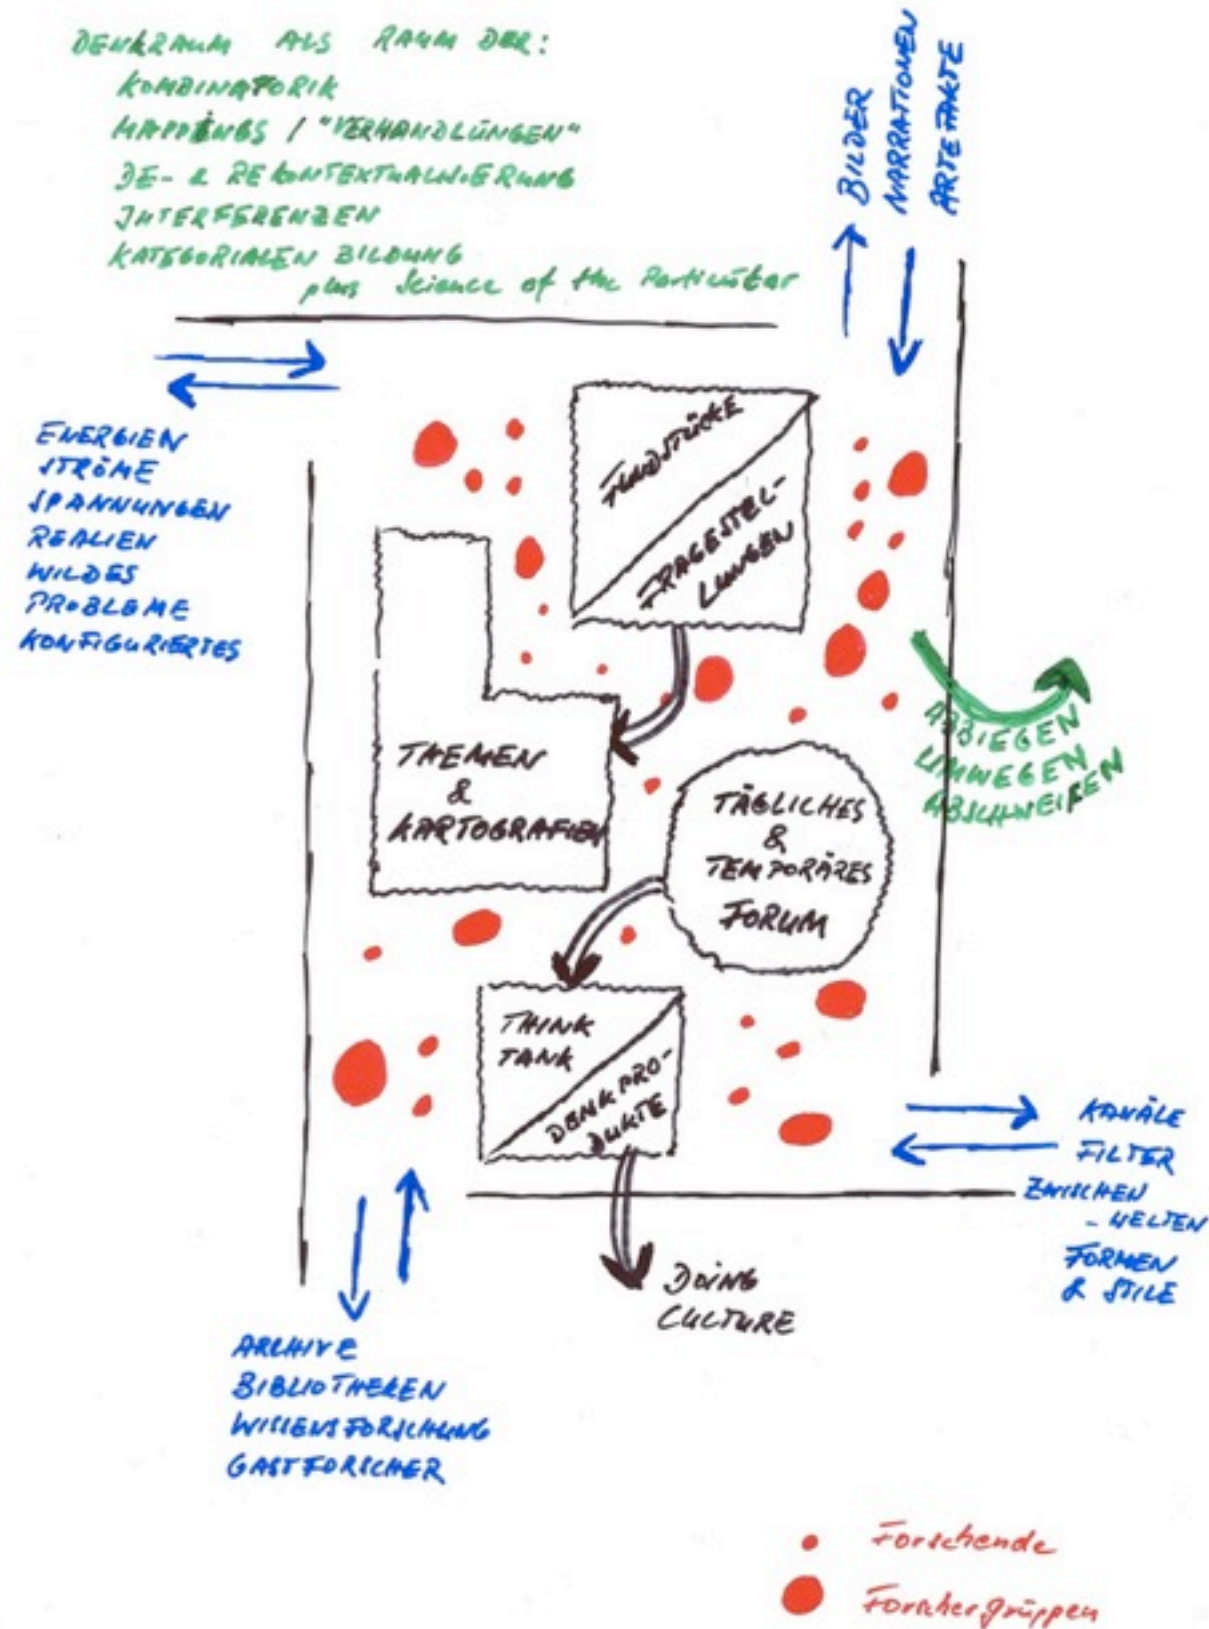 DENKRAUM ALS RAUM DER:
KOMBINATORIK
MAPPINGS / "VERHANDLUNGEN"
DE- & REKONTEXTUALISIERUNG
INTERFERENZEN
KATEGORIALEN BILDUNG
plus Science of the Particular
BILDER
NARRATIONEN
ARTEFAKTE
ENERGIEN
STRÖME
SPANNUNGEN
REALIEN
WILDES
PROBLEME
KONFIGURIERTES
FUNDSTÜCKE
FRAGESTEL-
LUNGEN
THEMEN
&
KARTOGRAFIEN
ABBIEGEN
UMWEGEN
ABSCHWEIFEN
TÄGLICHES
&
TEMPORÄRES
FORUM
THINK
TANK
DENKPRO-
DUKTE
KANÄLE
FILTER
ZWISCHEN
- WELTEN
FORMEN
& STILE
DOING
CULTURE
ARCHIVE
BIBLIOTHEKEN
WISSENSFORSCHUNG
GASTFORSCHER
Forschende
Forschergruppen